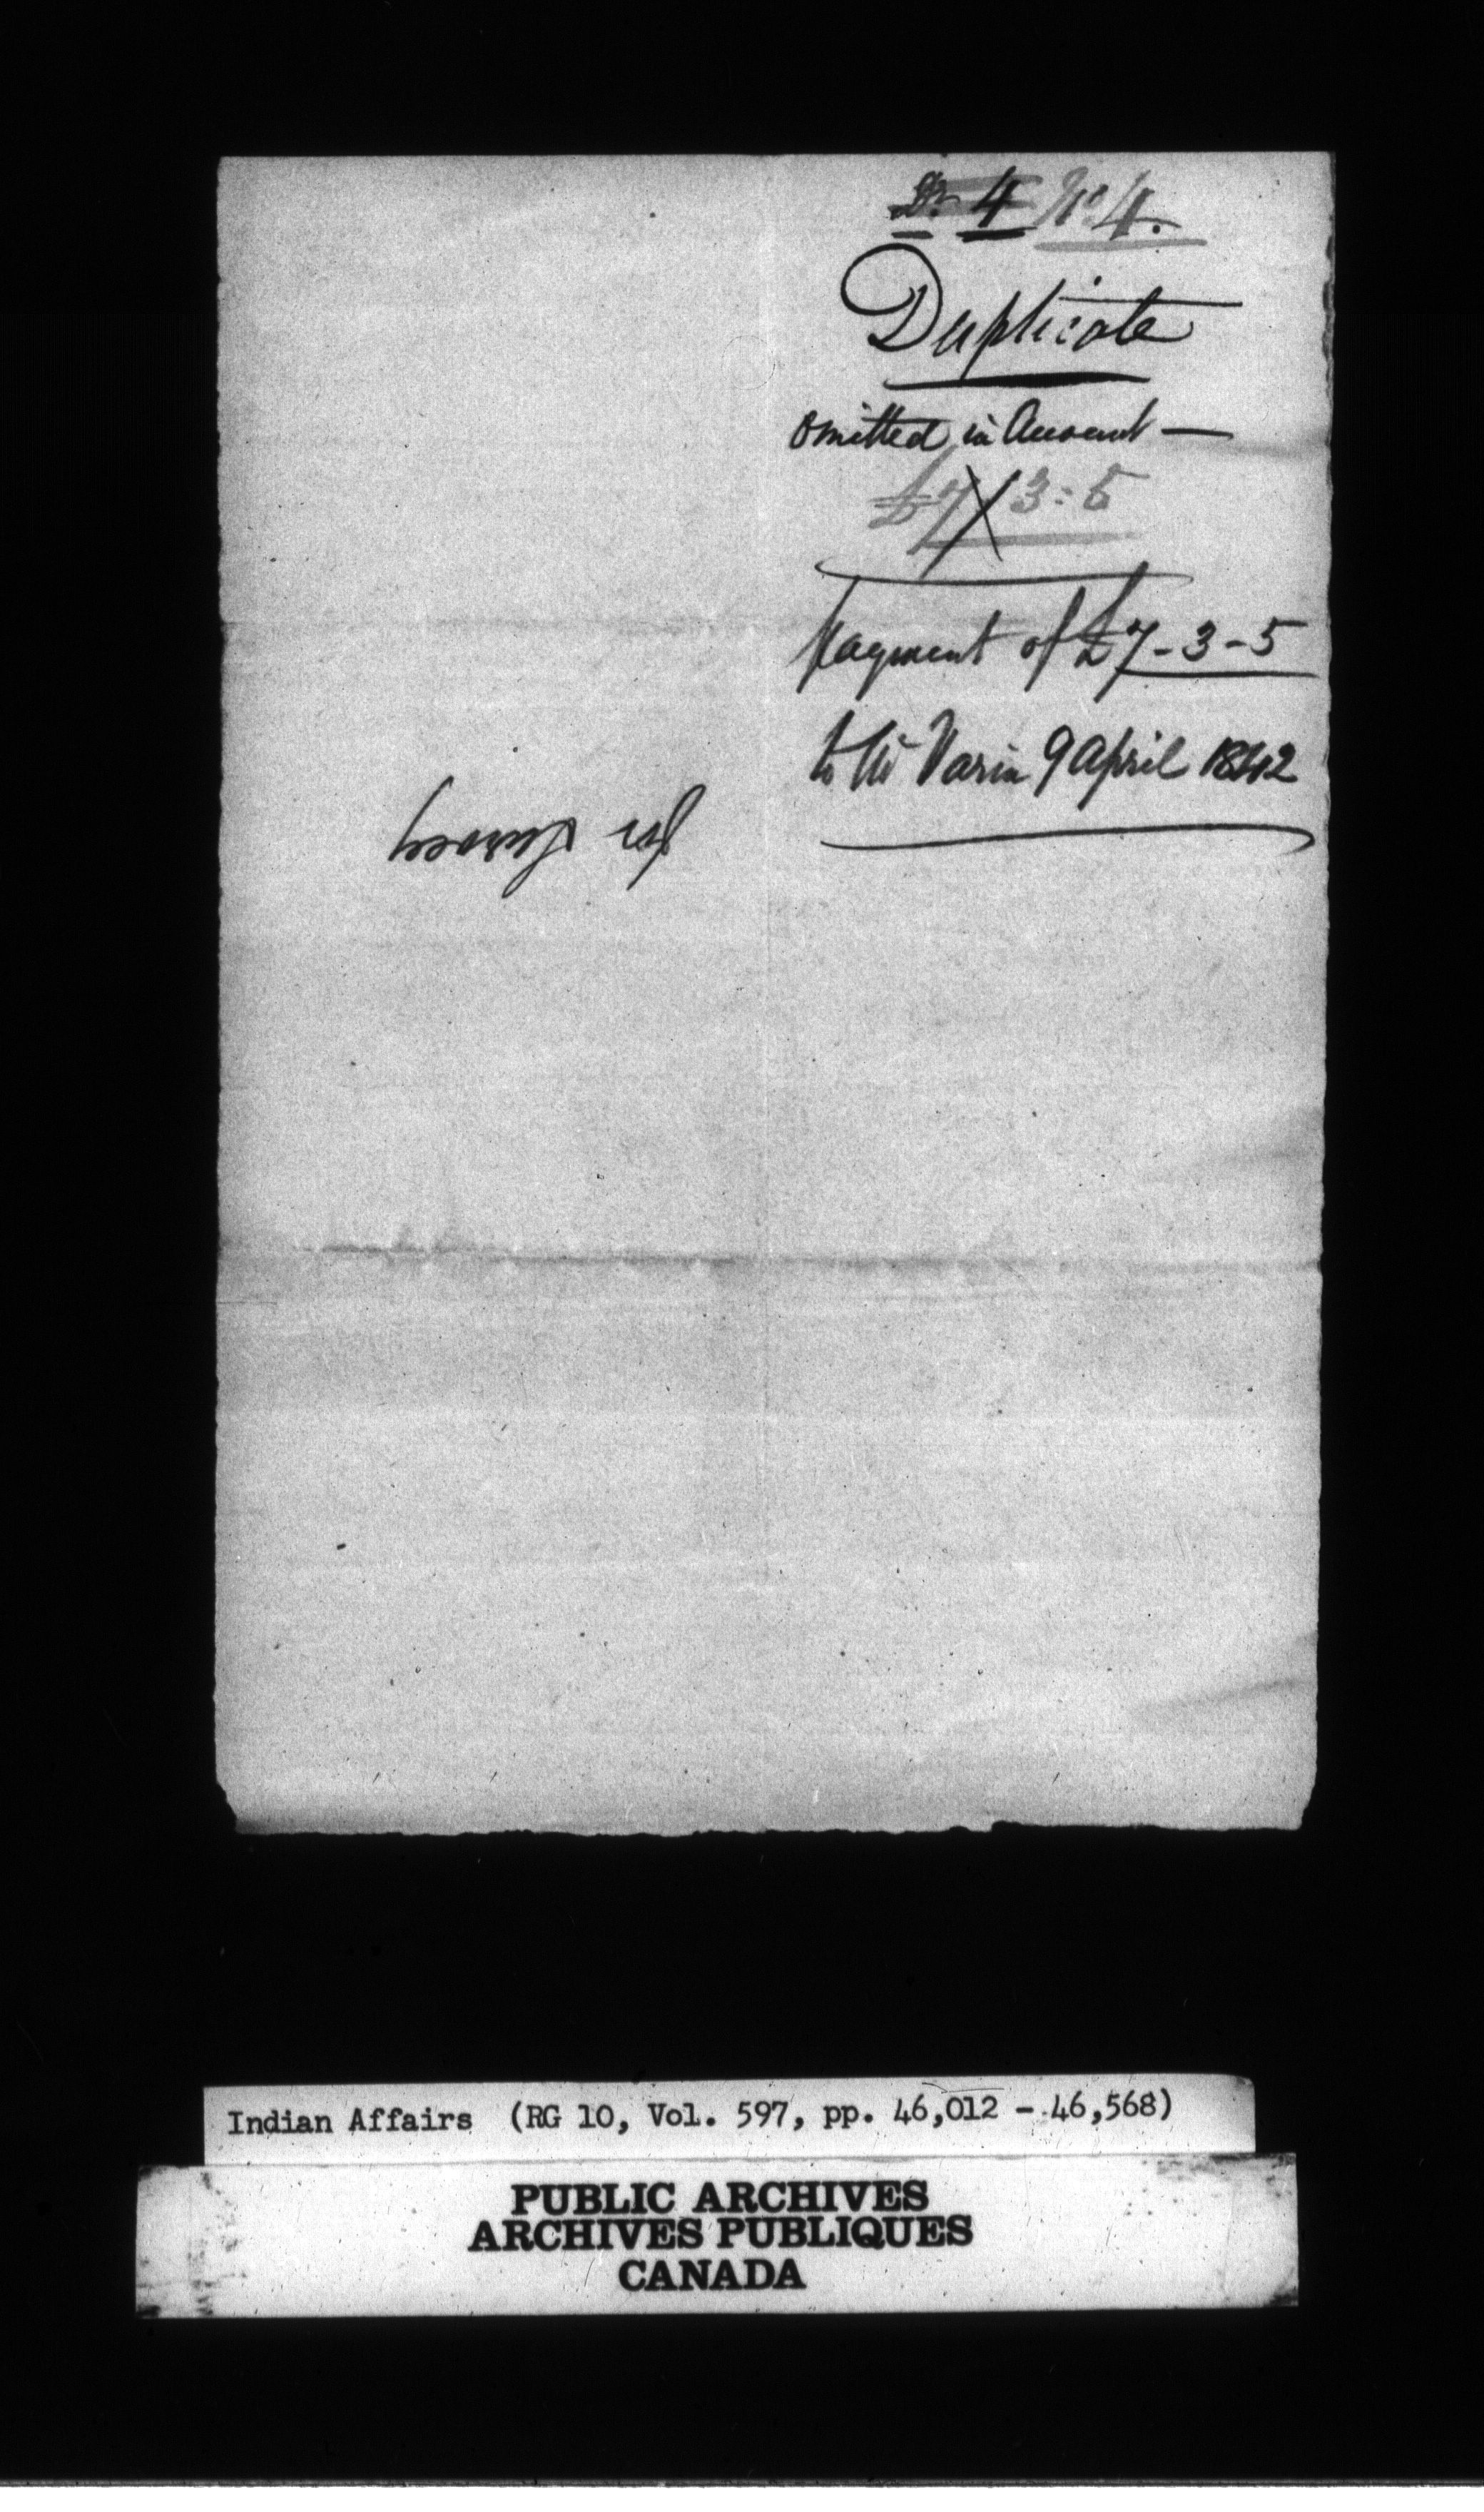 Dr 4 No 4.
Duplicate
omitted in Account —
£7 3 : 5
payment of £7 - 3 - 5
to Mr Varin 9 April 1842
Indian Affairs (RG 10, Vol. 597, pp. 46,012 - 46,568)
PUBLIC ARCHIVES
ARCHIVES PUBLIQUES
CANADA